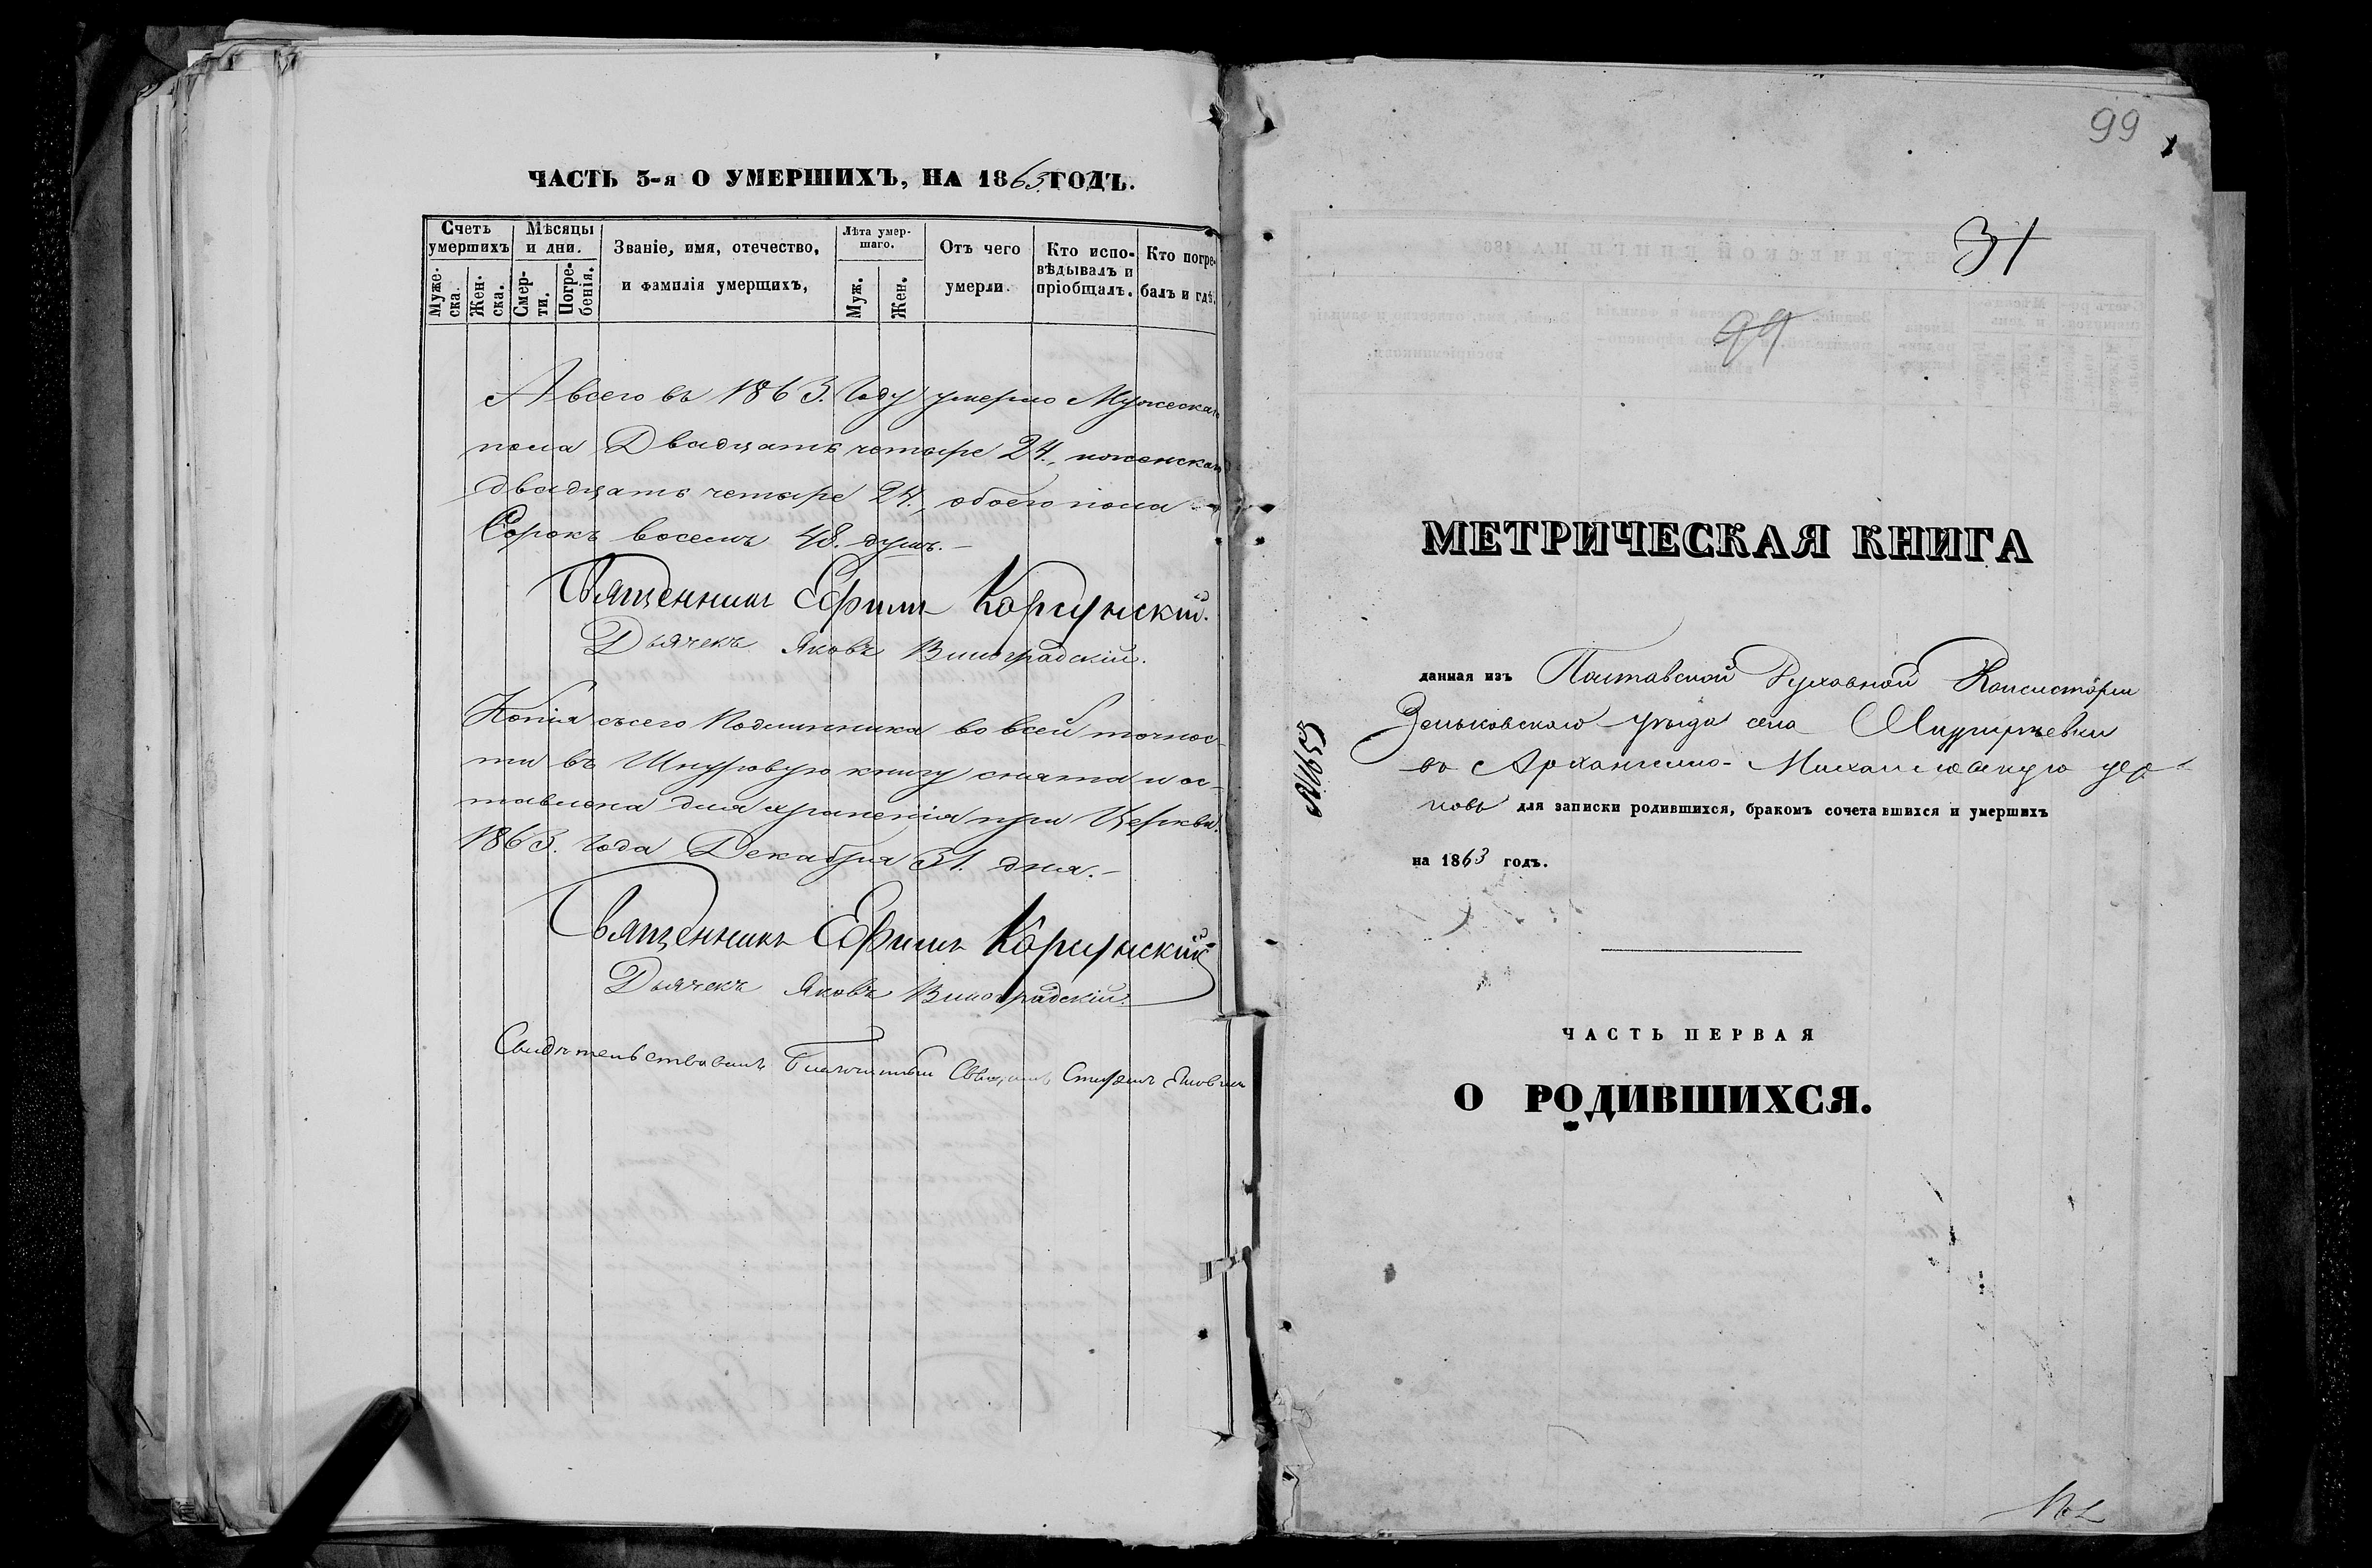 ЧАСТЬ 3-я О УМЕРШИХЪ, НА 1863. ГОДЪ.
Счетъ умершихъ
Муже-ска.
Жен-ска.
Мѣсяцы и дни.
Смер-ти.
Погре-бенія.
Званіе, имя, отечество,
и фамилія умершихъ,
Лѣта умер-шаго.
Муж.
Жен.
Отъ чего
умерли.
Кто испо-
вѣдывалъ и
пріобщалъ.
Кто погре-
балъ и гдѣ.
А всего въ 1863. Году умерло Мужеска
пола Двадцать четыре 24., женска
двадцать четыре 24., обоего пола
Сорокъ восемь 48. душъ.-
Священникъ Ефимъ Корсунскій.
Дьячекъ Яковъ Виноградскій.
Копія съ сего Подлинника во всей точнос-
ти въ Шнуровую книгу снята и ос-
тавлена для храненія при Церкви.
1863. Года Декабря 31. дня.-
Священникъ Ефимъ Корсунскій
Дьячекъ Яковъ Виноградскій.
Свидѣтельствовалъ Благочинный Священ.
99
31
99
МЕТРИЧЕСКАЯ КНИГА
данная изъ Полтавской Духовной Консисторіи
Зеньковскаго уѣзда села
въ Архангело-Михайловскую цер-
ковь для записки родившихся, бракомъ сочетавшихся и умершихъ
на 1863 годъ.
ЧАСТЬ ПЕРВАЯ
О РОДИВШИХСЯ.